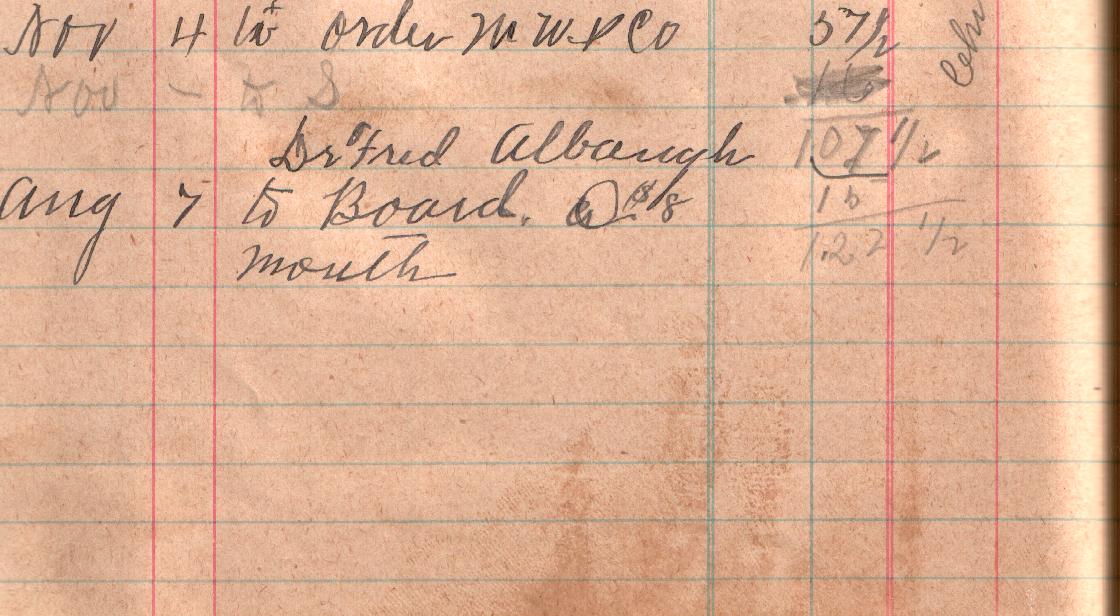 Nov 4 to order M W & Co 57 1/2
Nov - to S
Dr Fred Albaugh 107 1/2
Aug 7 to Board. @ $8 15
month 122 1/2